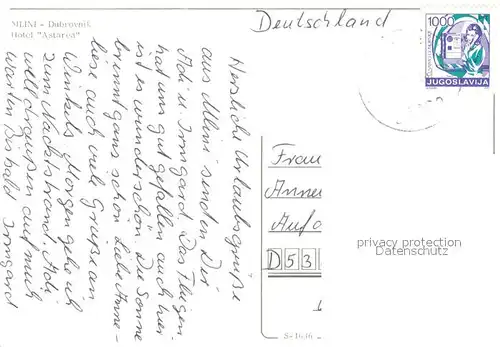 MLINI - Dubrovnik
Hotel "Astarea"
Deutschland
1000
JUGOSLAVIJA
Herzliche Urlaubsgrüße
aus Mlini senden Dir
Adi u. Irmgard Das Fliegen
hat uns gut gefallen auch hier
ist es wunderschön. Die Sonne
brennt ganz schön Liebe Anne-
liese auch viele Grüße an
Winkels Morgen gehe ich
zum Nacktstrand. Adi
will draußen auf mich
warten Bis bald Irmgard
Frau
Anne
D53
privacy protection
Datenschutz
S-1636